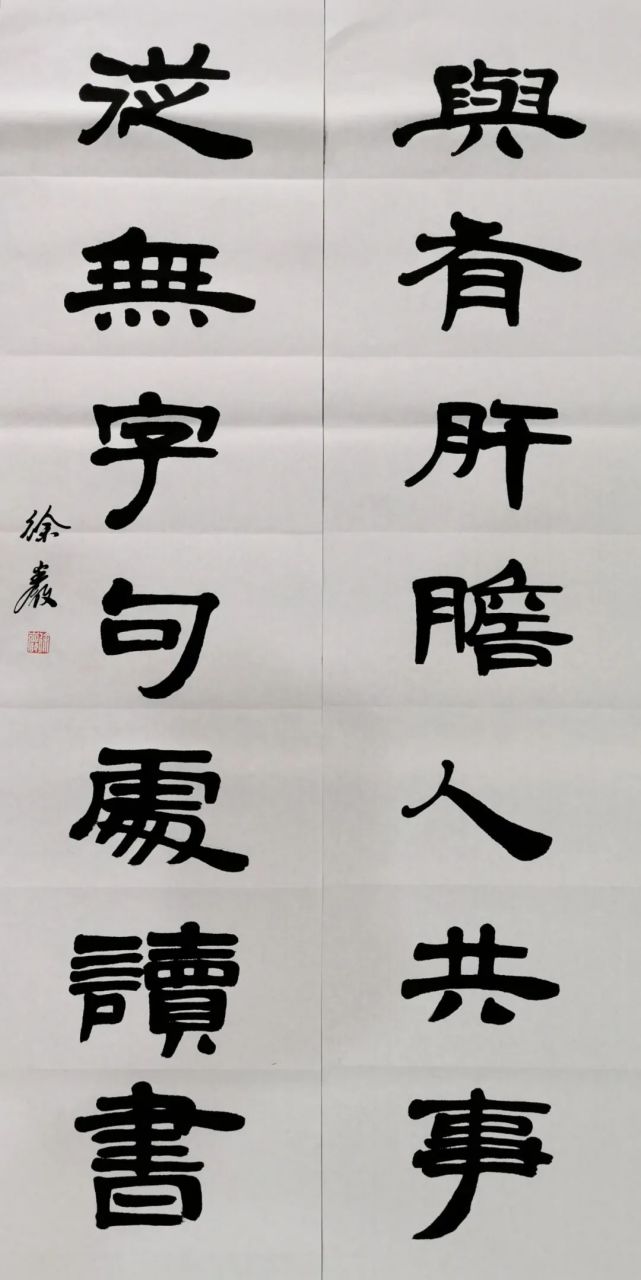 與有肝膽人共事
從無字句處讀書
徐巖